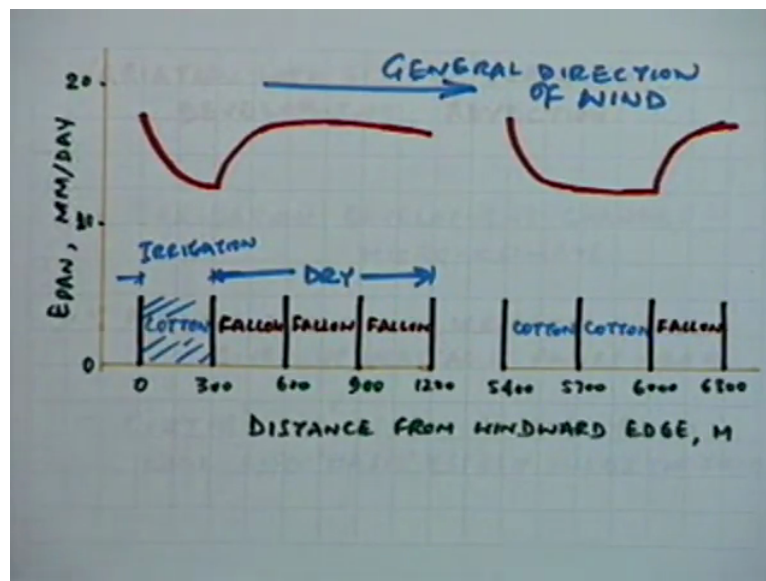 GENERAL DIRECTION
OF WIND
20
10
0
EPAN, MM/DAY
IRRIGATION
DRY
COTTON FALLOW FALLOW FALLOW COTTON COTTON FALLOW
0 300 600 900 1200 5400 5700 6000 6300
DISTANCE FROM WINDWARD EDGE, M